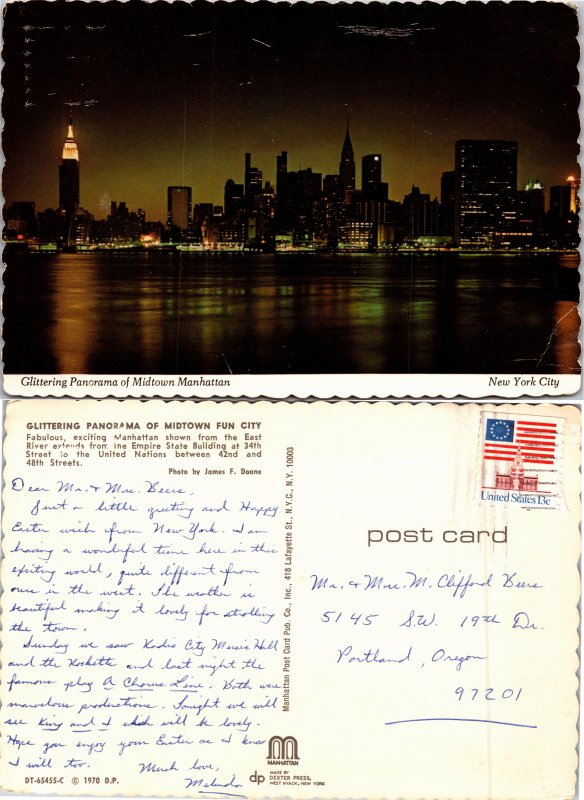 Glittering Panorama of Midtown Manhattan
New York City
GLITTERING PANORAMA OF MIDTOWN FUN CITY
Fabulous, exciting Manhattan shown from the East
River extends from the Empire State Building at 34th
Street to the United Nations between 42nd and
48th Streets.
Photo by James F. Doane
Dear Mr. & Mrs. Beers,
Just a little greeting and Happy
Easter wish from New York. I am
having a wonderful time here in this
exciting world, quite different from
ours in the west. The weather is
beautiful making it lovely for strolling
the town.
Sunday we saw Radio City Music Hall
and the Rockette and last night the
famous play A Chorus Line. Both were
marvelous productions. Tonight we will
see King and I which will be lovely.
Hope you enjoy your Easter as I know
I will too.
Much love,
Melinda
DT-65455-C © 1970 D.P.
Manhattan Post Card Pub. Co., Inc., 418 Lafayette St., N.Y.C., N.Y. 10003
MANHATTAN
dp
MADE BY
DEXTER PRESS
WEST NYACK, NEW YORK
United States 13c
post card
Mr. & Mrs. M. Clifford Beers
5145 S.W. 19th Dr.
Portland, Oregon
97201